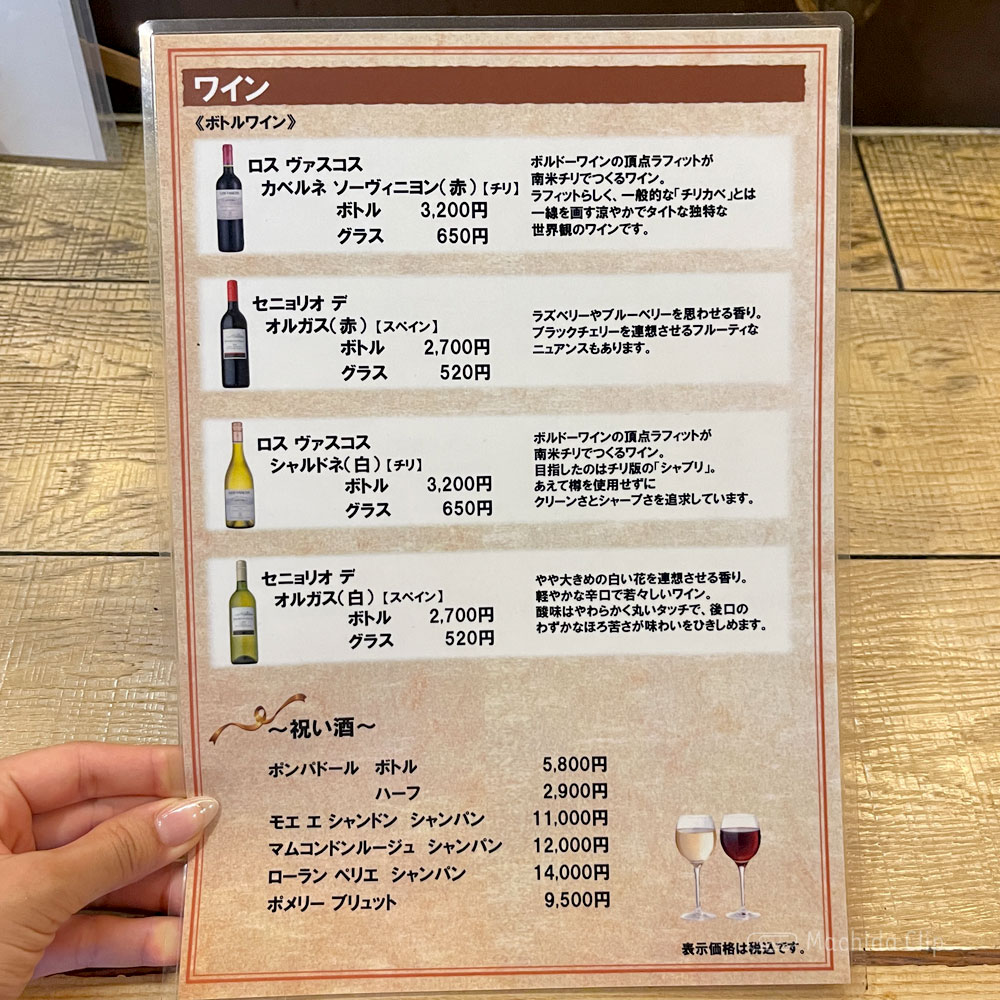 ワイン
《ボトルワイン》
ロス ヴァスコス
カベルネ ソーヴィニヨン(赤)【チリ】
ボトル 3,200円
グラス 650円
ボルドーワインの頂点ラフィットが
南米チリでつくるワイン。
ラフィットらしく、一般的な「チリカベ」とは
一線を画す涼やかでタイトな独特な
世界観のワインです。
セニョリオ デ
オルガス(赤)【スペイン】
ボトル 2,700円
グラス 520円
ラズベリーやブルーベリーを思わせる香り。
ブラックチェリーを連想させるフルーティな
ニュアンスもあります。
ロス ヴァスコス
シャルドネ(白)【チリ】
ボトル 3,200円
グラス 650円
ボルドーワインの頂点ラフィットが
南米チリでつくるワイン。
目指したのはチリ版の「シャブリ」。
あえて樽を使用せずに
クリーンさとシャープさを追求しています。
セニョリオ デ
オルガス(白)【スペイン】
ボトル 2,700円
グラス 520円
やや大きめの白い花を連想させる香り。
軽やかな辛口で若々しいワイン。
酸味はやわらかく丸いタッチで、後口の
わずかなほろ苦さが味わいをひきしめます。
～祝い酒～
ポンパドール ボトル 5,800円
ハーフ 2,900円
モエ エ シャンドン シャンパン 11,000円
マムコンドンルージュ シャンパン 12,000円
ローラン ペリエ シャンパン 14,000円
ポメリー ブリュット 9,500円
表示価格は税込です。
Machida clip